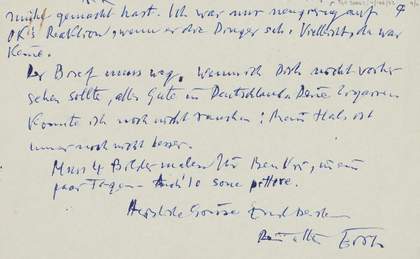 mühe gemacht hast. Ich war nur neugierig auf
Reaktion, wenn er die Dinger sah. Vielleicht, da war
Keine.
Der Brief muss weg, wenn ich Dich nicht vorher
sehen sollte, alles Gute in Deutschland. Deine Cigarren
konnte ich noch nicht rauchen! Mein Hals ist
immer noch nicht besser.
Muss 4 Bilder malen für, in ein
paar Tagen - Anch'io sono pittore.
Herzliche Grüsse